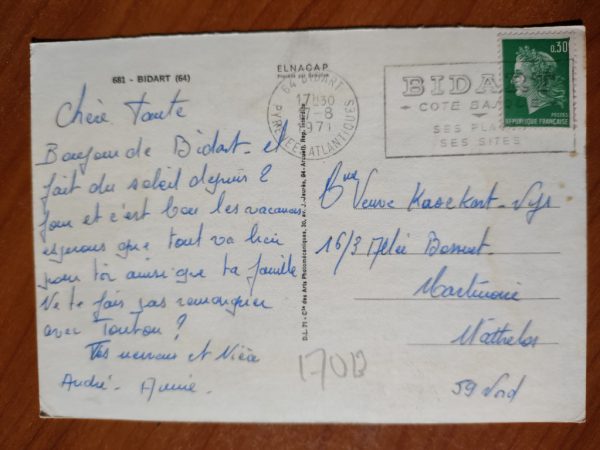 681 - BIDART (64)
ELNACAP
64 BIDART
17H30
7-8
1971
PYRENEES ATLANTIQUES
BIDA
COTE BA
SES PLA
SES SITES
0,30
POSTES
REPUBLIQUE FRANÇAISE
Chère Tante
Bonjour de Bidart. il
fait du soleil depuis 2
jour et c'est bon les vacances
esperons que tout va bien
pour toi ainsi que ta famille
Ne te fais pas remarquer
avec Tonton ?
Tes neveux et Nièce
André - Annie.
D.L. 71 - Cie des Arts Photomécaniques, 30, av. J.-Jaurès, 94 - Arcueil. Rep. interdite
Veuve
16/3 Allée Bossuet
Martinoire
Wattrelos
59 Nord
170B